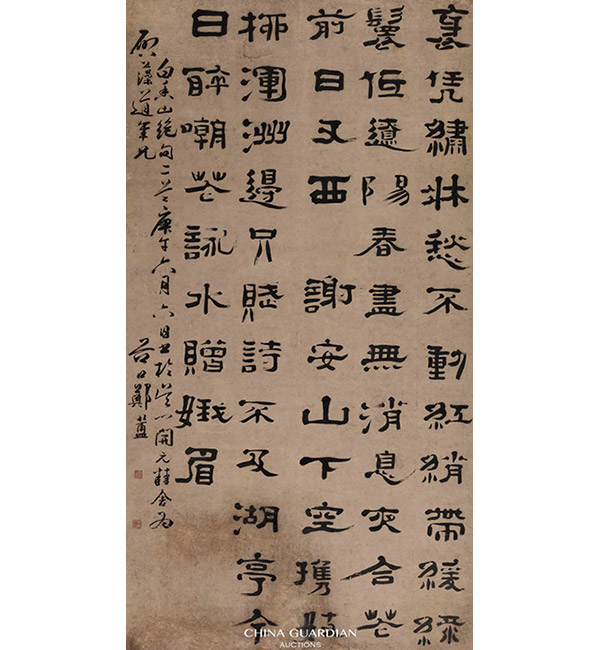 衺凭繡牀愁不動紅綃帶緩綠
鬟低遼陽春盡無消息夜合花
前日又西 謝安山下空攜妓
桺渾洲邊只賦詩不及湖亭今
日醉嘲花詠水贈娥眉
白香山絕句二首庚午六月六日書於吳門開元精舍為
藻道年兄 谷口鄭簠
CHINA GUARDIAN
AUCTIONS